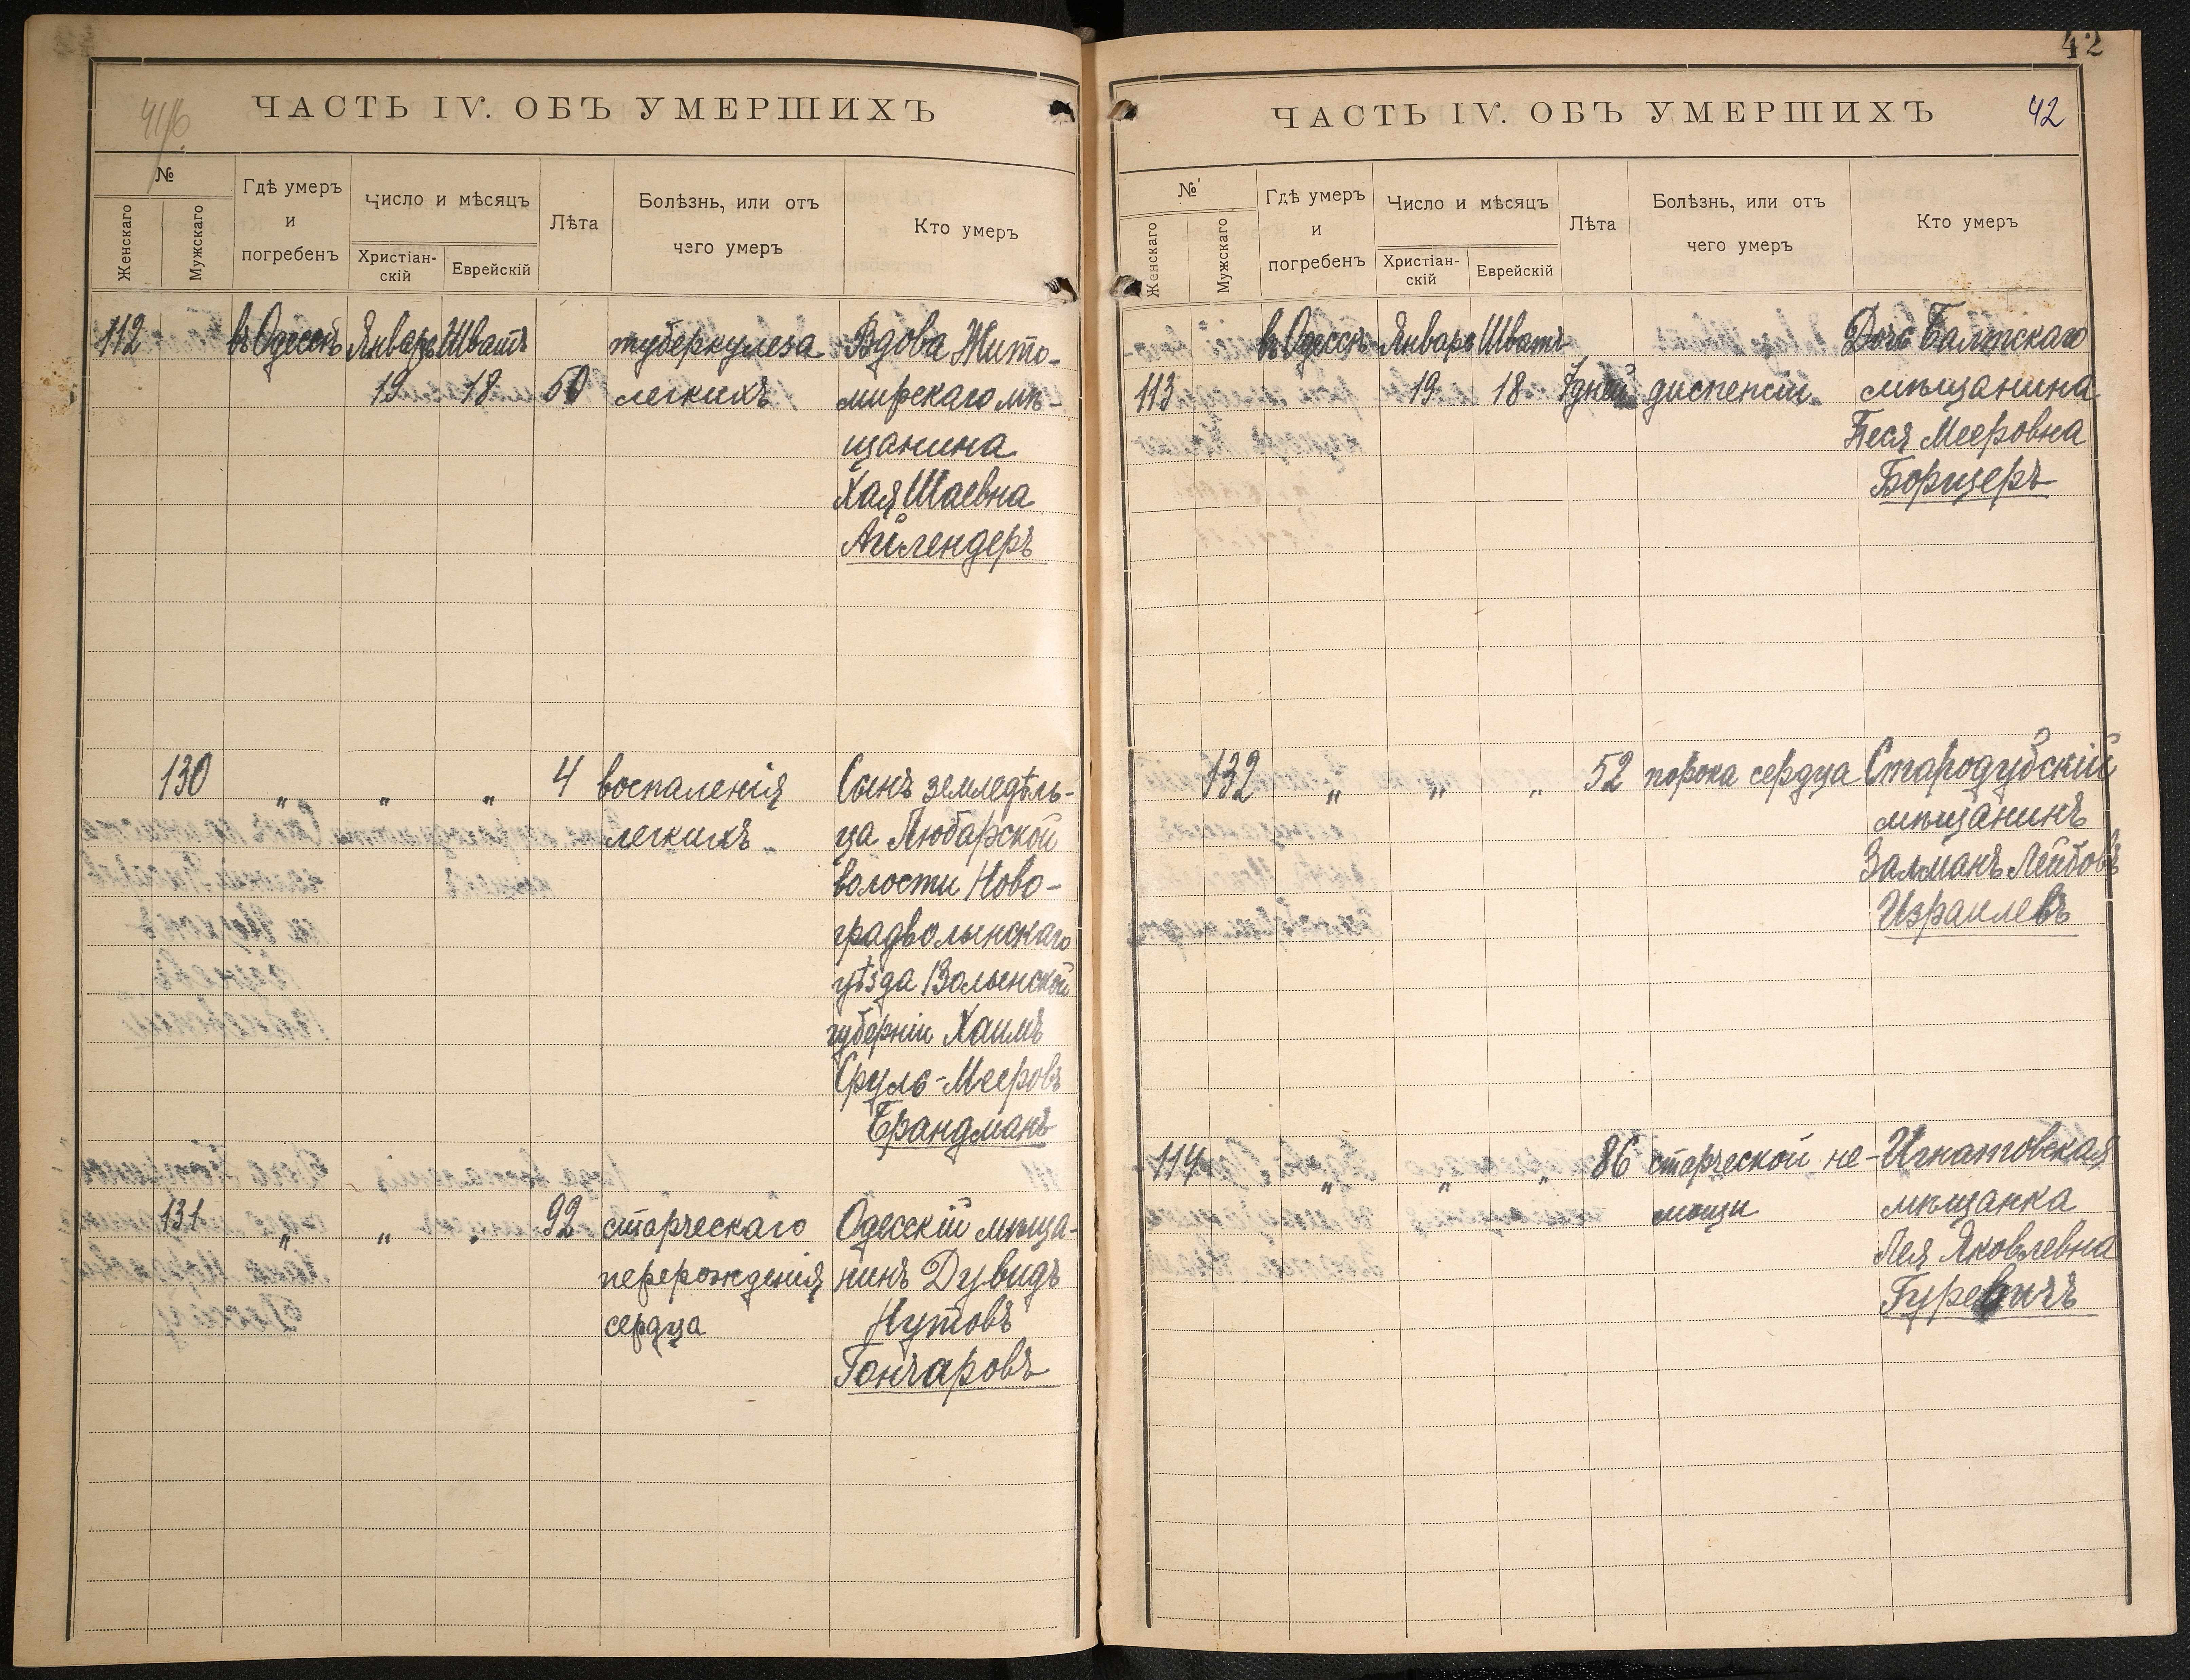 41/б.
ЧАСТЬ IV. ОБЪ УМЕРШИХЪ
№
Женскаго
Мужскаго
Гдѣ умеръ
и
погребенъ
Число и мѣсяцъ
Христіан-
скій
Еврейскій
Лѣта
Болѣзнь, или отъ
чего умеръ
Кто умеръ
112 въ Одессѣ Январь Шватъ туберкулеза Вдова Жито-
19 18 50 легкихъ мирскаго мѣ-
щанина
Хая Шаевна
Айлендеръ
130 " " " 4 воспаленія Сынъ земледѣль-
легкихъ ца Любарской
волости Ново-
градволынскаго
уѣзда Волынской
губерніи Хаимъ
Сруль-Мееровъ
Брандманъ
131 " " " 92 старческаго Одесскій мѣща-
перерожденія нинъ Дувидъ
сердца Нутовъ
Гончаровъ
42
ЧАСТЬ IV. ОБЪ УМЕРШИХЪ 42
№
Женскаго
Мужскаго
Гдѣ умеръ
и
погребенъ
Число и мѣсяцъ
Христіан-
скій
Еврейскій
Лѣта
Болѣзнь, или отъ
чего умеръ
Кто умеръ
въ Одессѣ Январь Шватъ Дочь Балтскаго
113 19 18 7 дней диспепсіи мѣщанина
Песя Мееровна
Борщеръ
132 " " " 52 порока сердца Стародубскій
мѣщанинъ
Залманъ Лейбовъ
Израилевъ
114 " " " 86 старческой не- Игнатовская
мощи мѣщанка
Лея Яковлевна
Гуревичъ